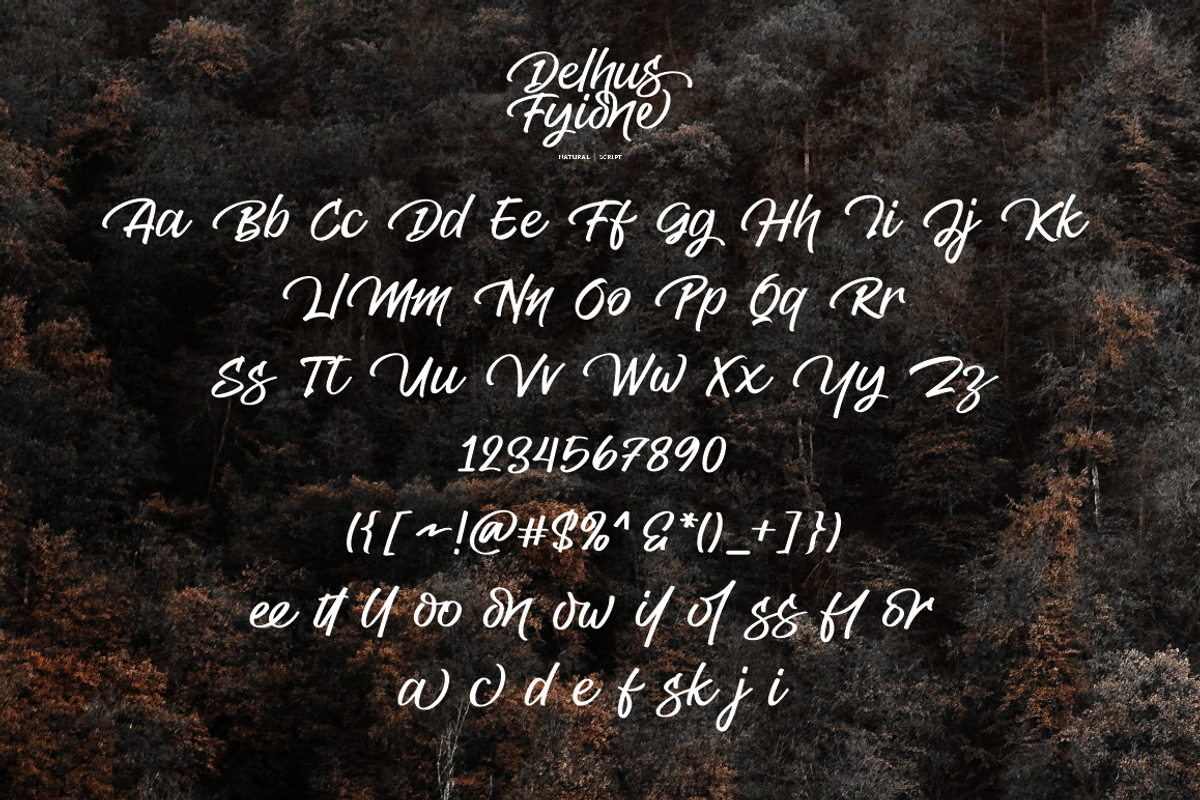 Delhus
Fyione
NATURAL | SCRIPT
Aa Bb Cc Dd Ee Ff Gg Hh Ii Jj Kk
Ll Mm Nn Oo Pp Qq Rr
Ss Tt Uu Vv Ww Xx Yy Zz
1234567890
({[~!@#$%^&*()_+]})
ee tt ll oo on ow if of ss ff or
a c d e f s k j i